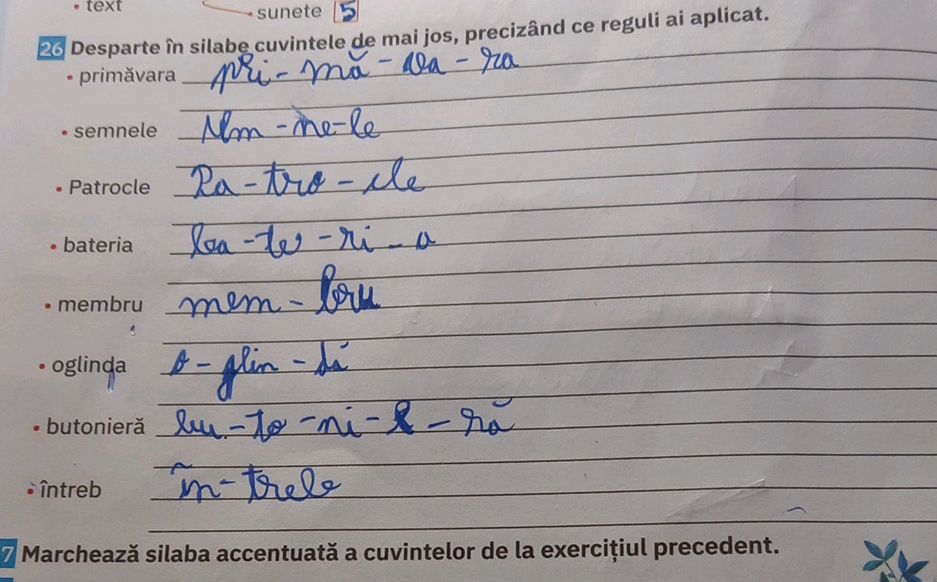 • text
• sunete 5
26 Desparte în silabe cuvintele de mai jos, precizând ce reguli ai aplicat.
• primăvara pri-mă-va-ra
• semnele sem-ne-le
• Patrocle Pa-tro-cle
• bateria ba-te-ri-a
• membru mem-bru
• oglinda o-glin-dă
• butonieră bu-to-ni-e-ră
• întreb în-treb
7 Marchează silaba accentuată a cuvintelor de la exercițiul precedent.